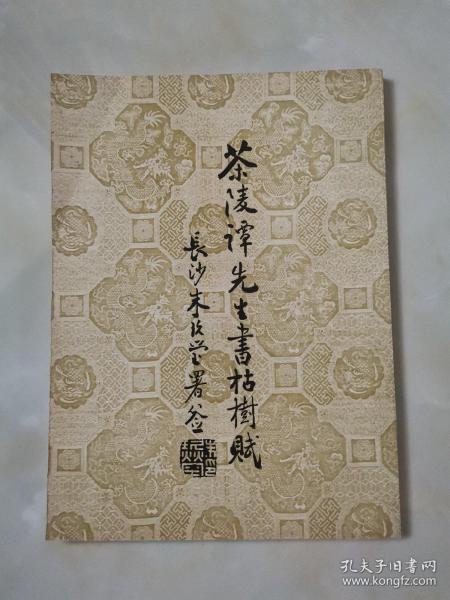 茶陵譚先生書枯樹賦
長沙朱玖瑩署簽
孔夫子旧书网
www.kongfz.com